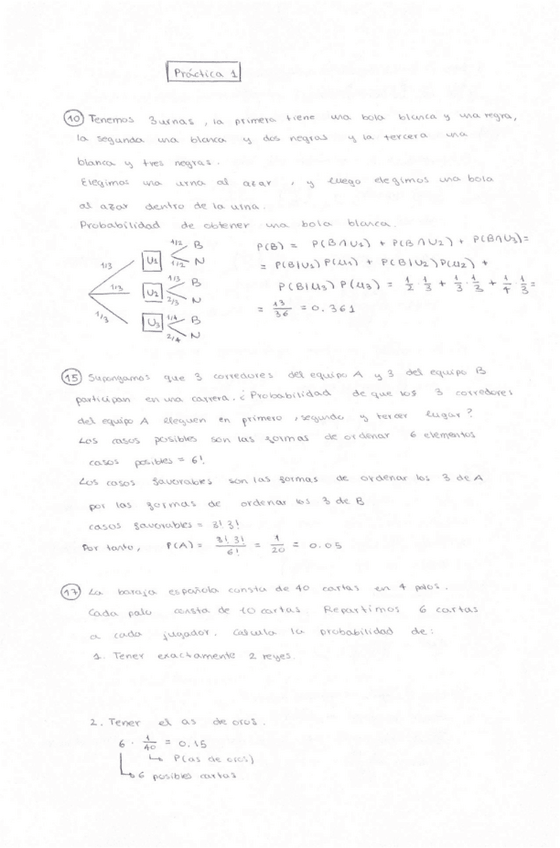 Práctica 1
10 Tenemos 3 urnas, la primera tiene una bola blanca y una negra,
la segunda una blanca y dos negras y la tercera una
blanca y tres negras.
Elegimos una urna al azar, y luego elegimos una bola
al azar dentro de la urna.
Probabilidad de obtener una bola blanca.
1/3 U1 1/2 B 1/2 N
1/3 U2 1/3 B 2/3 N
1/3 U3 1/4 B 2/4 N
P(B) = P(B∩U1) + P(B∩U2) + P(B∩U3) =
= P(B|U1) P(U1) + P(B|U2) P(U2) +
P(B|U3) P(U3) = 1/2 · 1/3 + 1/3 · 1/3 + 1/4 · 1/3 =
= 13/36 = 0.361
15 Supongamos que 3 corredores del equipo A y 3 del equipo B
participan en una carrera. ¿Probabilidad de que los 3 corredores
del equipo A lleguen en primero, segundo y tercer lugar?
Los casos posibles son las formas de ordenar 6 elementos
casos posibles = 6!
Los casos favorables son las formas de ordenar los 3 de A
por las formas de ordenar los 3 de B
casos favorables = 3! 3!
Por tanto, P(A) = 3! 3!/6! = 1/20 = 0.05
17 La baraja española consta de 40 cartas en 4 palos.
Cada palo consta de 10 cartas. Repartimos 6 cartas
a cada jugador. Calcula la probabilidad de:
1. Tener exactamente 2 reyes.
2. Tener el as de oros.
6 · 1/40 = 0.15
P(as de oros)
6 posibles cartas